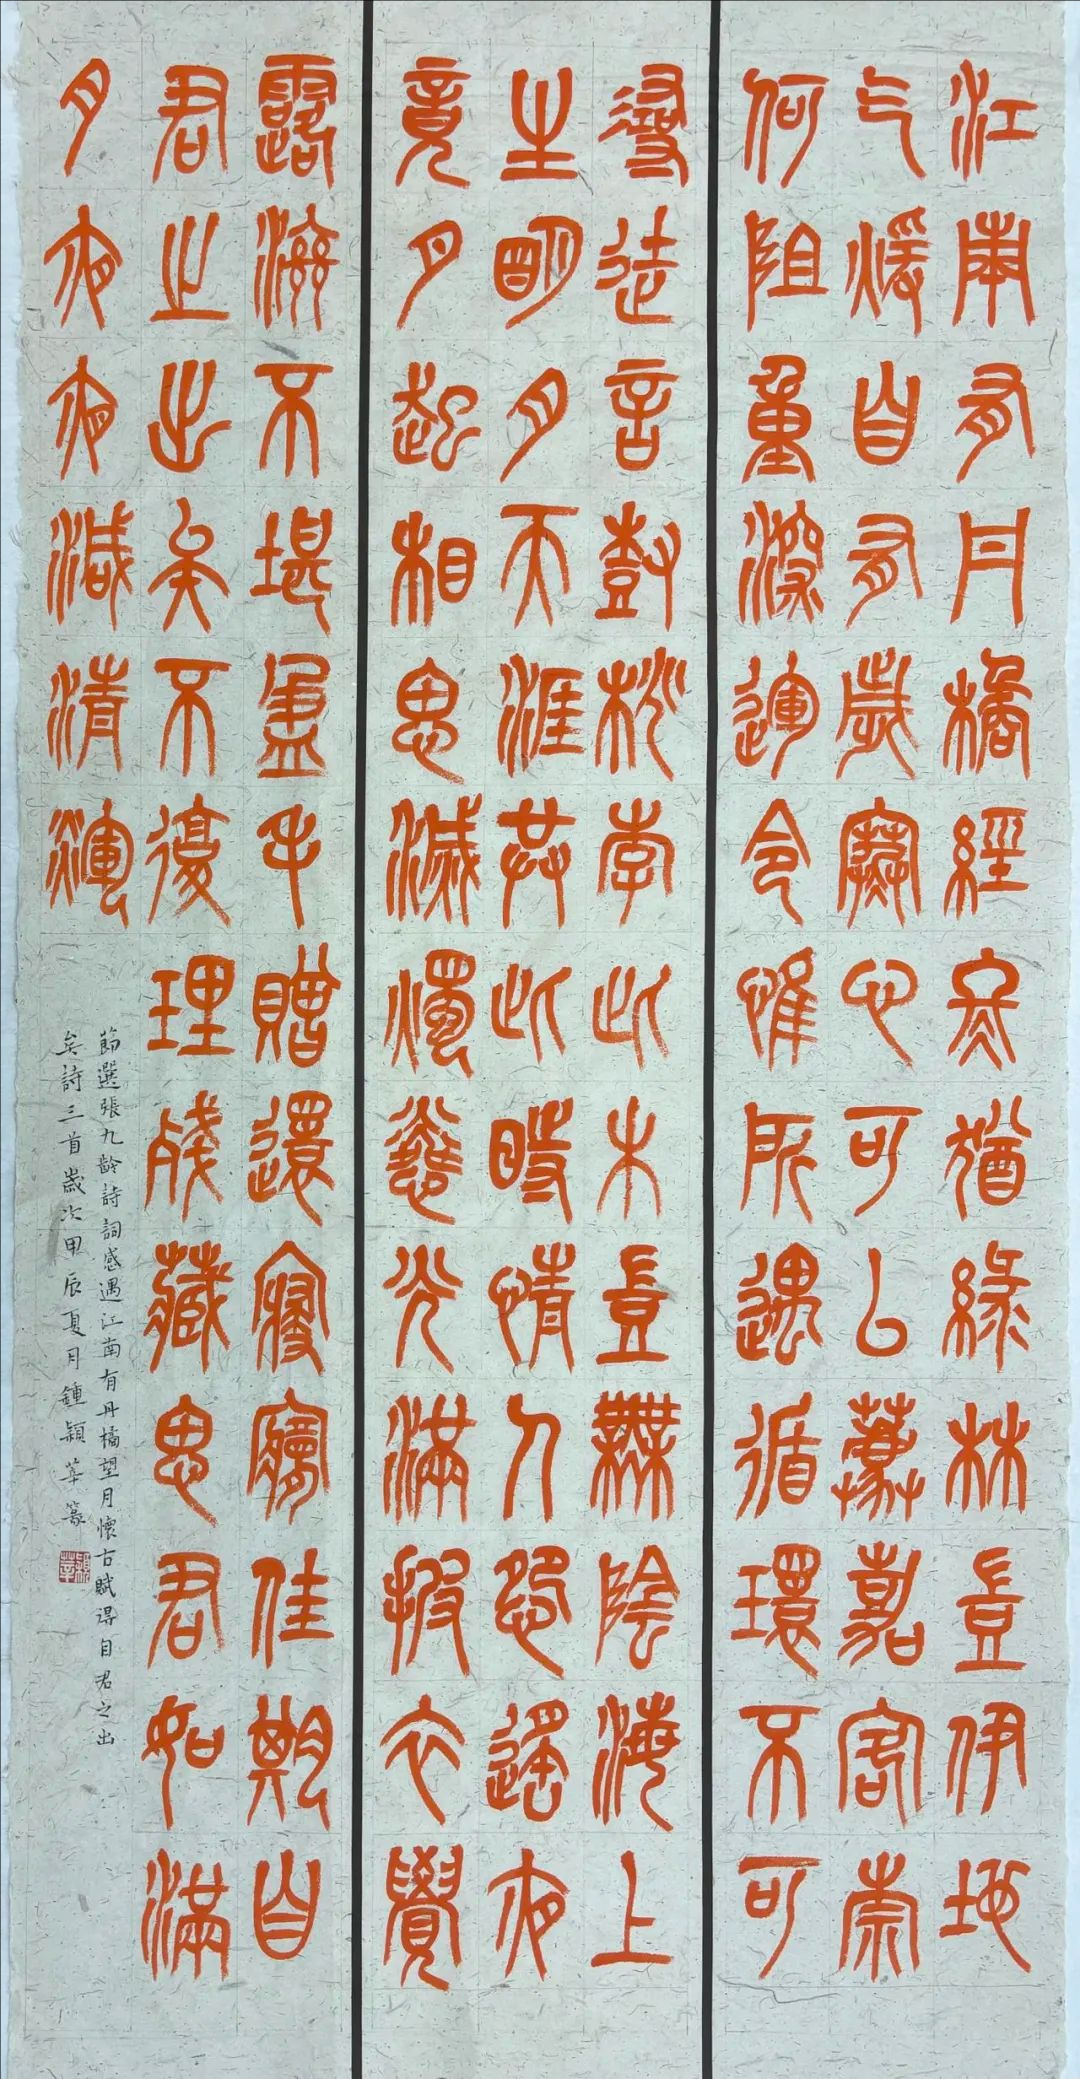 江南有丹橘經冬猶綠林豈伊地
气煖自有歲寒心可以薦嘉客柰
何阻重深運令惟所遇循環不可
尋徒言樹桃李此木豈無陰海上
生明月天涯共此時情人怨遙夜
竟夕起相思滅燭憐光滿披衣覺
露滋不堪盈手贈還寢夢佳期自
君之出矣不復理殘藏思君如滿
月夜夜減清輝
節選張九齡詩詞感遇江南有丹橘望月懷古賦得自君之出
矣詩三首歲次甲辰夏月鍾穎華篆
穎華